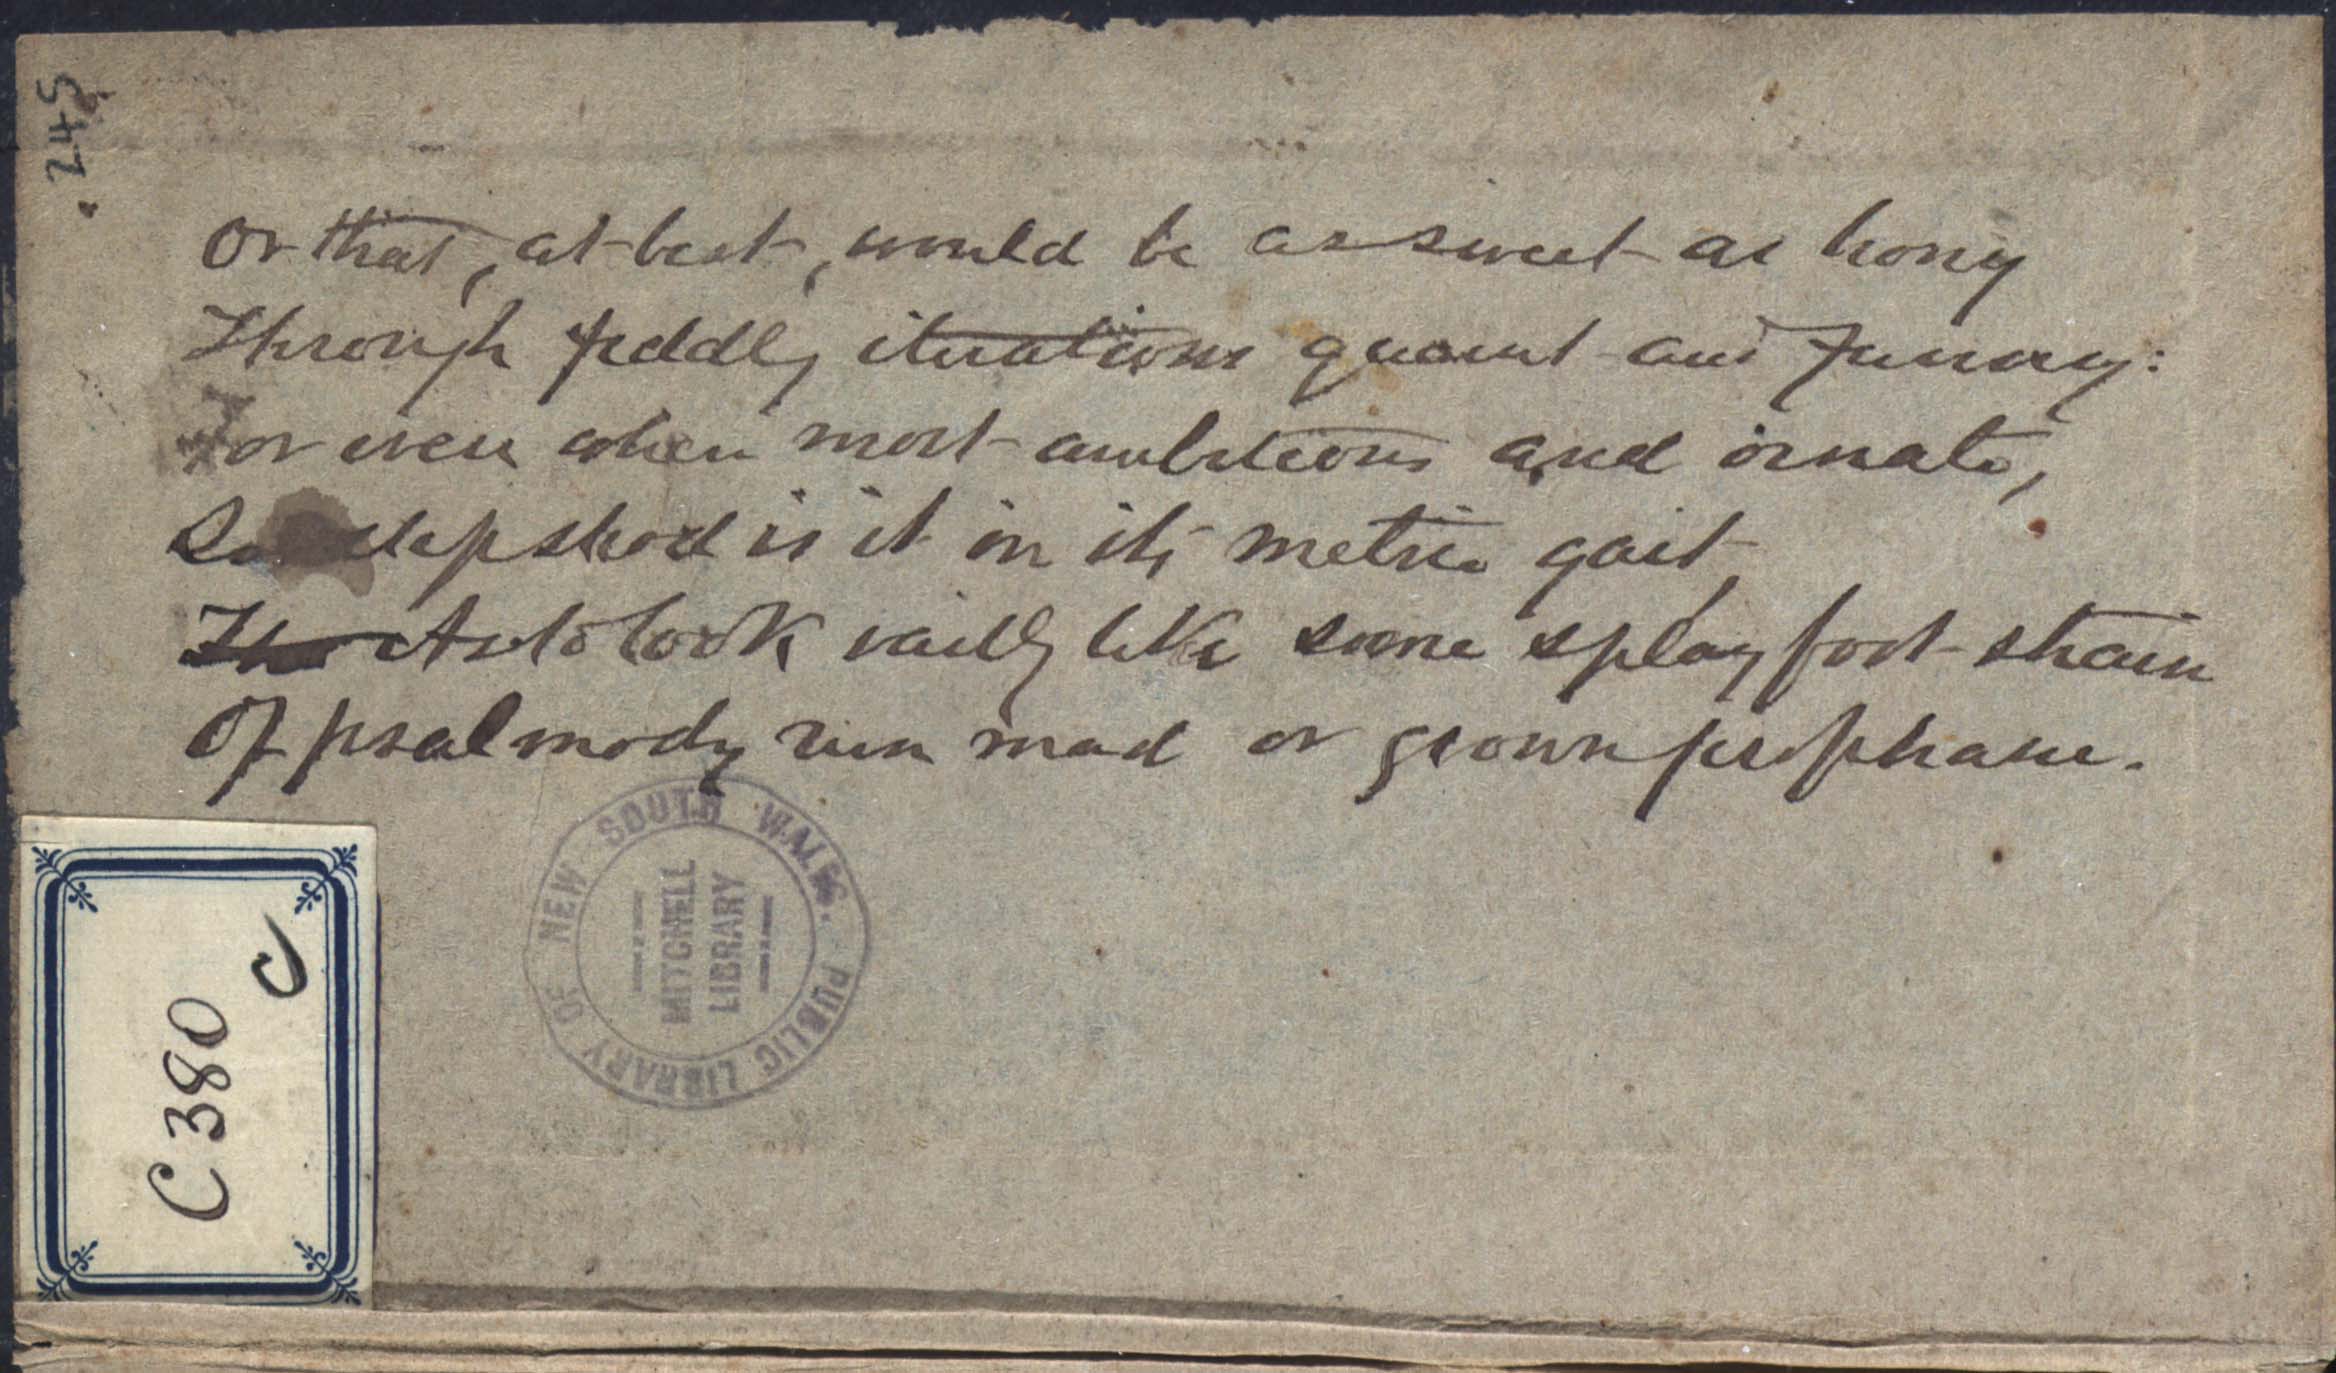 . 245
Or that, at best, would be as sweet as hony
Through fiddly iterations quaint and funny:
Or even when most ambitious and ornate,
So slipshod is it in its metric gait,
The As to look vaily like some splay foot strain
Of psalmody run mad or grown prophane.
PUBLIC LIBRARY OF NEW SOUTH WALES.
MITCHELL
LIBRARY
C 380
C